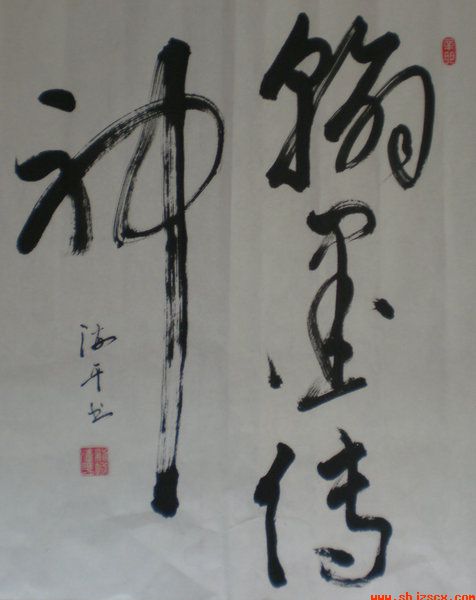 翰墨传
神
海平书
www.shjzscx.com